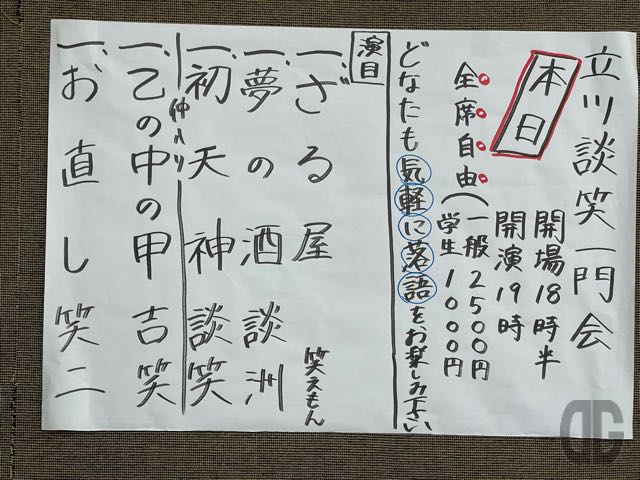 立川談笑一門会
本日
開場18時半
開演19時
全席自由
(一般2500円
学生1000円
どなたも気軽に落語をお楽しみ下さい
演目
一、ざる屋 笑えもん
一、夢の酒 談洲
一、初天神 談笑
仲入り
一、乙の中の甲 吉笑
一、お直し 笑二
DG